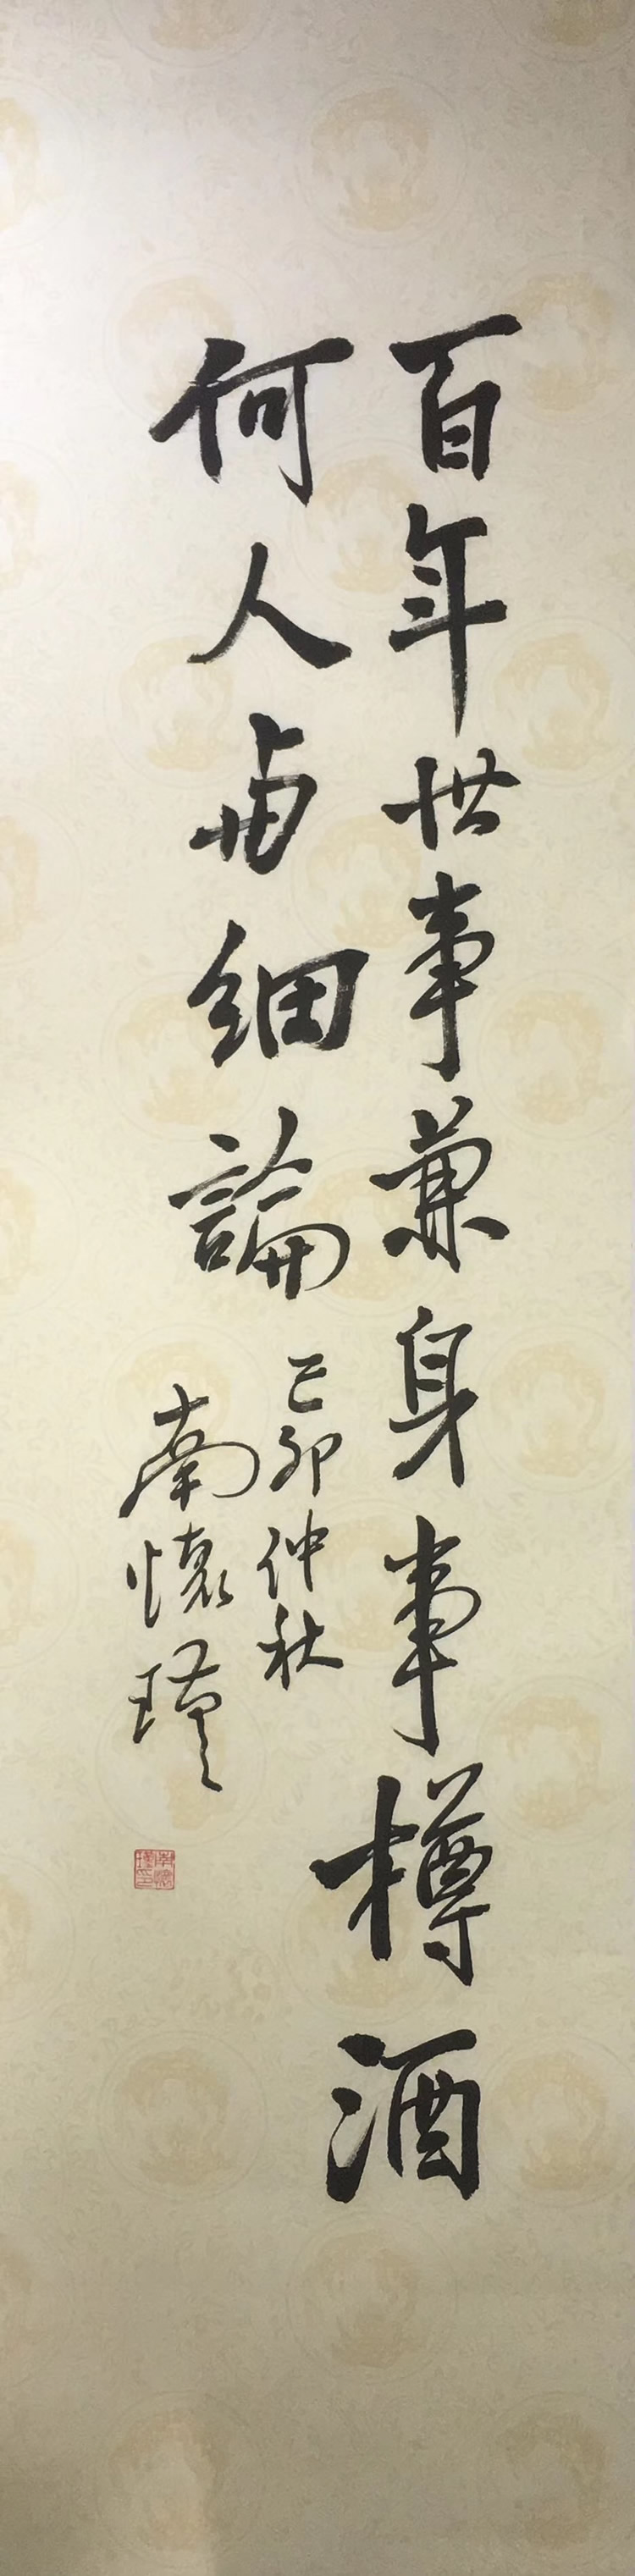 百年世事兼身事樽酒
何人與細論
己卯仲秋
南懷瑾